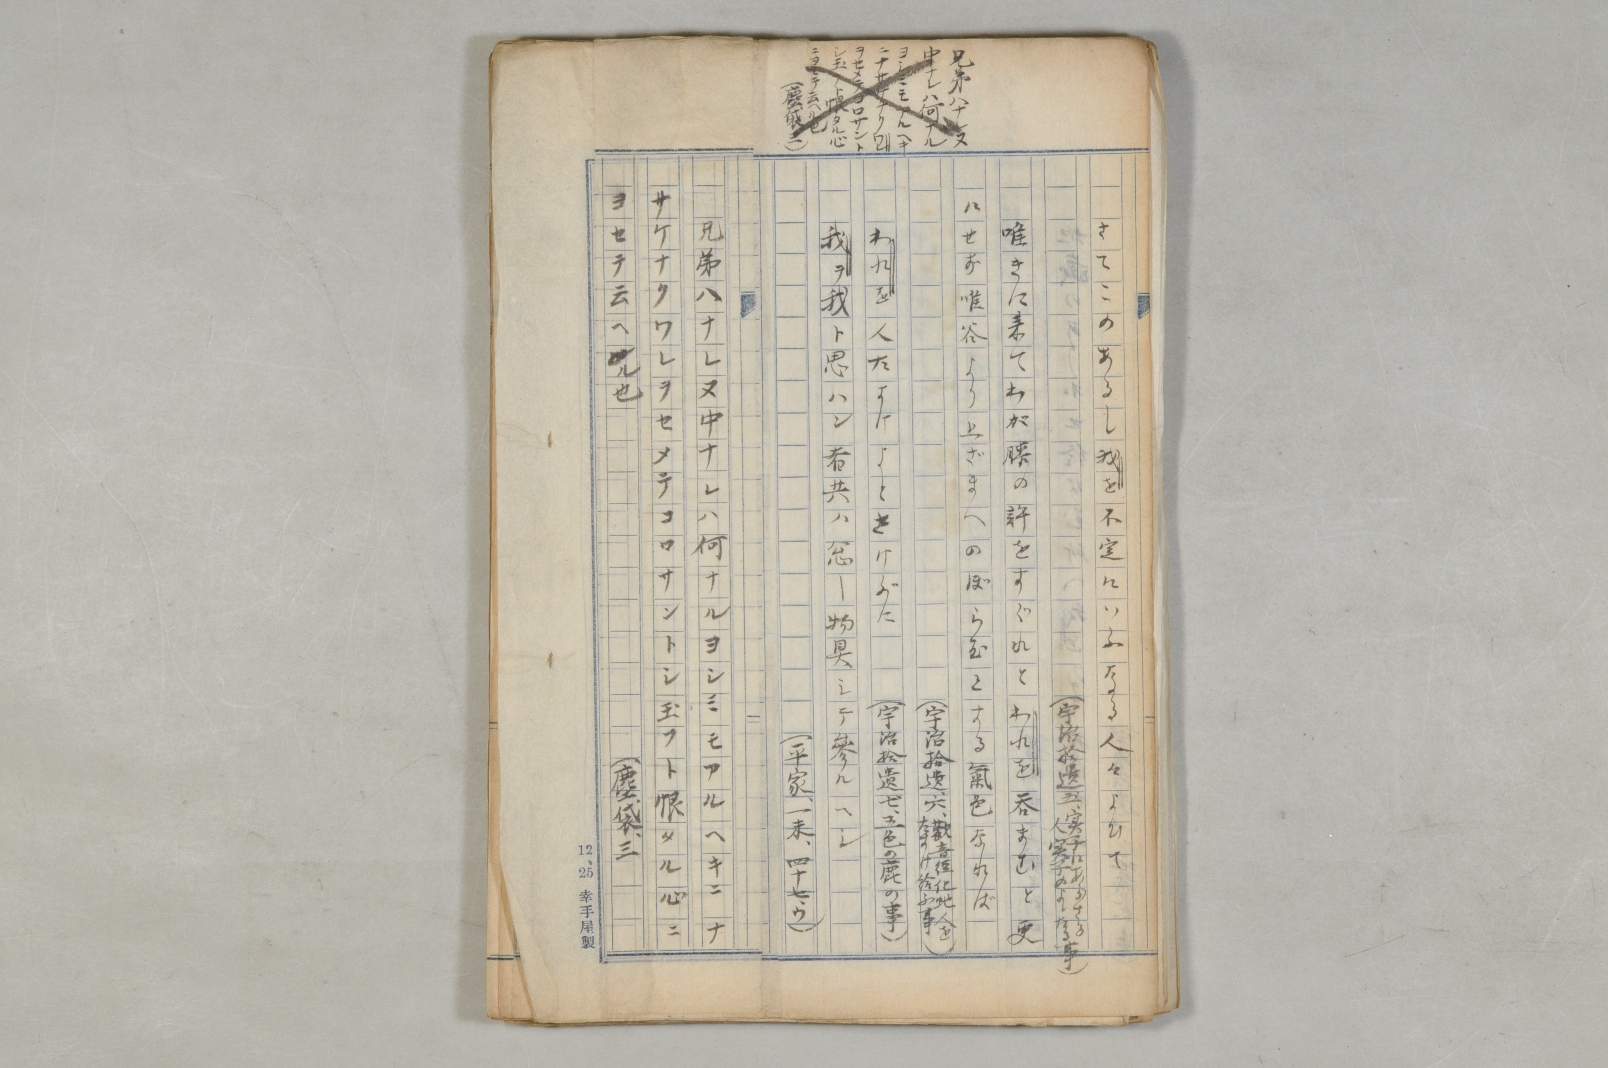 兄弟ハナレヌ
中ナレハ何ナル
ヨシミモアルヘキ
ニナサケナクワレ
ヲセメテコロサント
シ玉フト恨タル心
ニヨセテ云ヘル也
(塵袋三)
さてこのあるし我を不定にいふなる人々よひて
(宇治拾遺五、実子にあらさる人実子のよし〓たる事)
唯きに来てわが膝の許をすぐれとわれを呑まむと更
にせず唯谷より上ざまへのぼら〓とする氣色なれば
(宇治拾遺六、觀音經化地人を
たすけ給ふ事)
われを人たすけよとさけびた
(宇治拾遺七、五色の鹿の事)
我ヲ我ト思ハン者共ハ急ー物具シテ參ルヘシ
(平家、一末、四十七ウ)
兄弟ハナレヌ中ナレハ何ナルヨシミモアルヘキニナ
サケナクワレヲセメテコロサントシ玉フト恨タル心ニ
ヨセテ云ヘル也
(塵袋、三)
12、25 幸手屋製